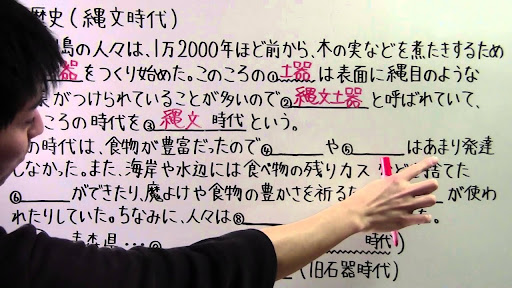 歴史(縄文時代)
島の人々は、1万2000年ほど前から、木の実などを煮たきするため
土器をつくり始めた。このころの①土器は表面に縄目のような
がつけられていることが多いので②縄文土器と呼ばれていて、
ころの時代を③縄文時代という。
の時代は、食物が豊富だったので④ や⑤ はあまり発達
しなかった。また、海岸や水辺には食べ物の残りカス を捨てた
⑥ ができたり、魔よけや食物の豊かさを祈る が使わ
れたりしていた。ちなみに、人々は⑧ た。
青森県…⑨ 時代)
(旧石器時代)